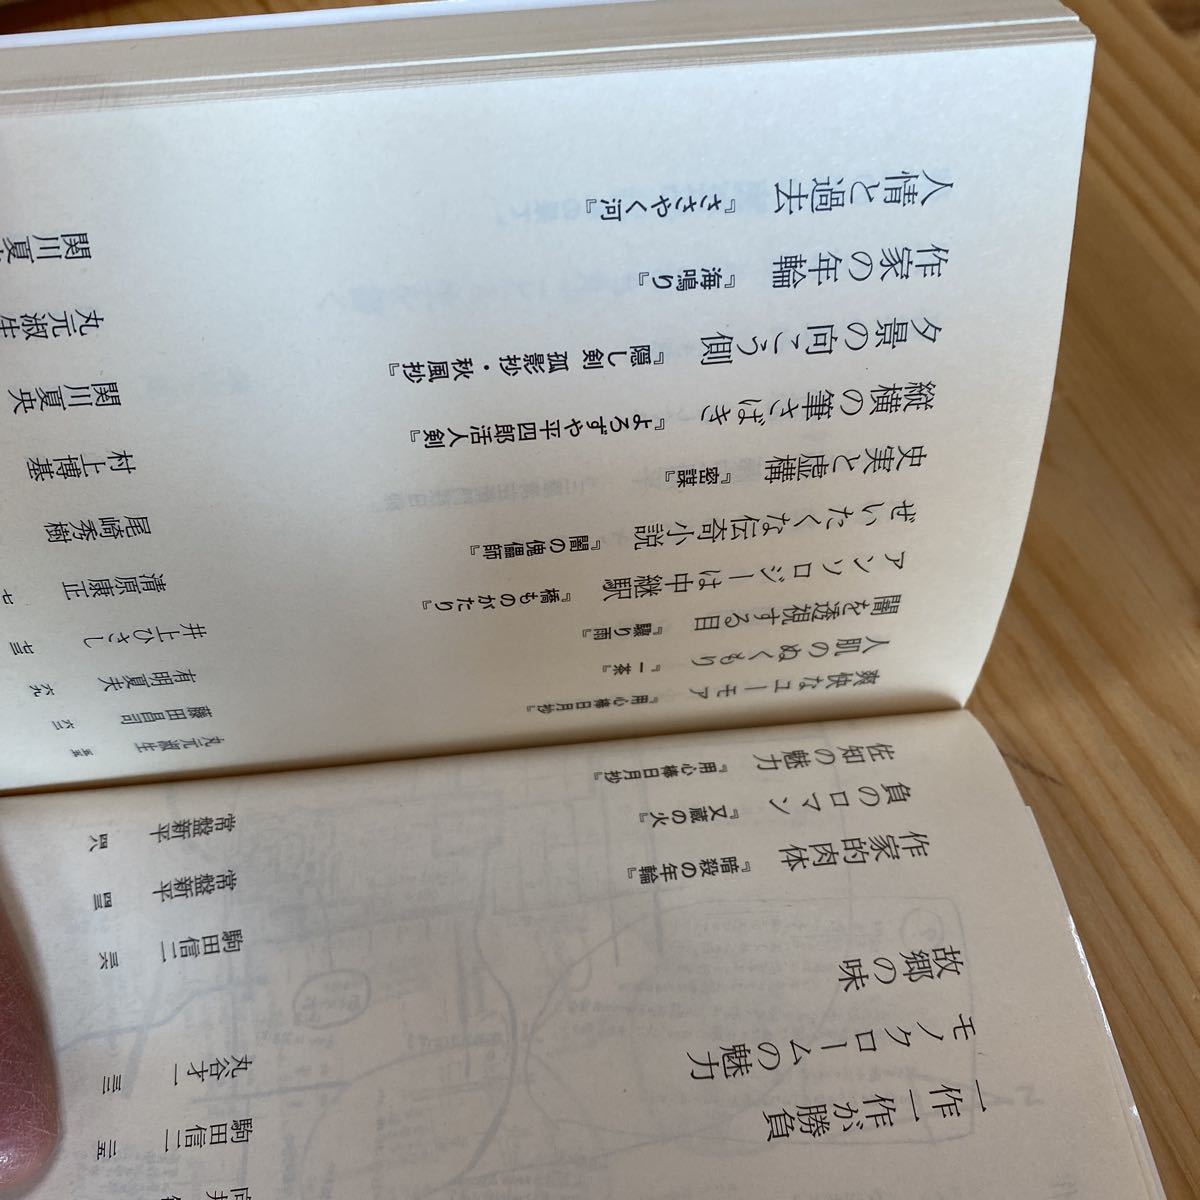 一作が勝負 向井
モノクロームの魅力 駒田信二 二五
故郷の味 丸谷才一
作家的肉体 『暗殺の年輪』 駒田信二 三六
負のロマン 『又蔵の火』 常盤新平 四三
佐知の魅力 『用心棒日月抄』 常盤新平 四八
爽快なユーモア 『用心棒日月抄』 丸元淑生 五五
人肌のぬくもり 『一茶』 藤田昌司 六三
闇を透視する目 『驟り雨』 有明夏夫 六九
アンソロジーは中継駅 『橋ものがたり』 井上ひさし 七三
ぜいたくな伝奇小説 『闇の傀儡師』 清原康正 七
史実と虚構 『密謀』 尾崎秀樹
縦横の筆さばき 『よろずや平四郎活人剣』 村上博基
夕景の向こう側 『隠し剣 孤影抄・秋風抄』 関川夏央
作家の年輪 『海鳴り』 丸元淑生
人情と過去 『ささやく河』 関川夏